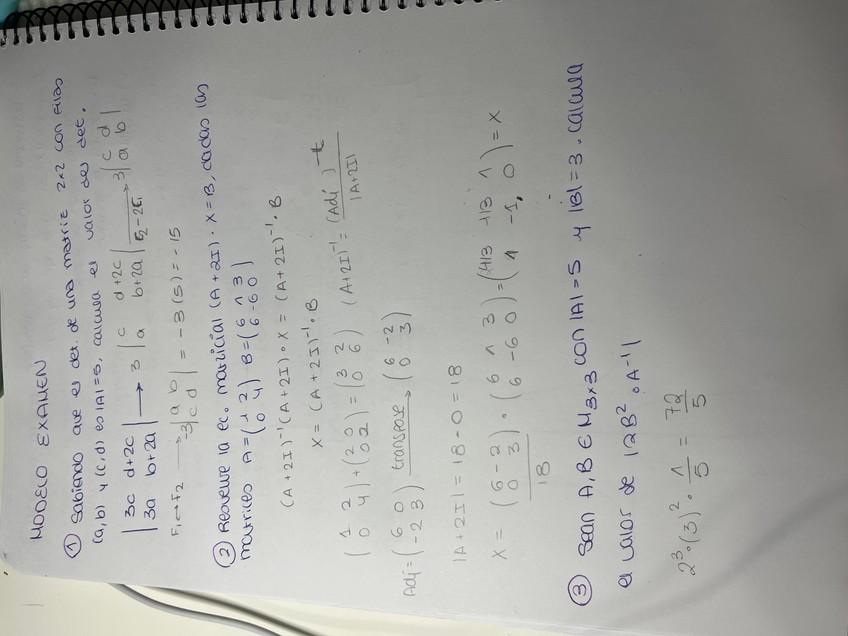 MODELO EXAMEN
① Sabiendo que el det. de una matriz 2x2 con filas
(a,b) y (c,d) es |A|=5, calcula el valor del det.
| 3c d+2c |
| 3a b+2a | → 3 | c d+2c |
| a b+2a | → F2-2F1 3 | c d |
| a b |
F1→F2 → -3 | a b |
| c d | = -3(5) = -15
② Resuelve la ec. matricial (A+2I)·X=B, dadas las
matrices A=(1 2
0 4) B=(6 1 3
6 -6 0)
(A+2I)⁻¹(A+2I)·X=(A+2I)⁻¹·B
X=(A+2I)⁻¹·B
(1 2
0 4)+(2 0
0 2)=(3 2
0 6) (A+2I)⁻¹=(Adj)ᵗ
|A+2I|
Adj=(6 0
-2 3) transpose → (6 -2
0 3)
|A+2I|=18-0=18
X= (6 -2
0 3)
18 · (6 1 3
6 -6 0)=(4/3 1/3 1
1 -1, 0)=X
③ Sean A,B∈M3x3 con |A|=5 y |B|=3. calcula
el valor de |2B²·A⁻¹|
2³·(3)²·1/5=72/5